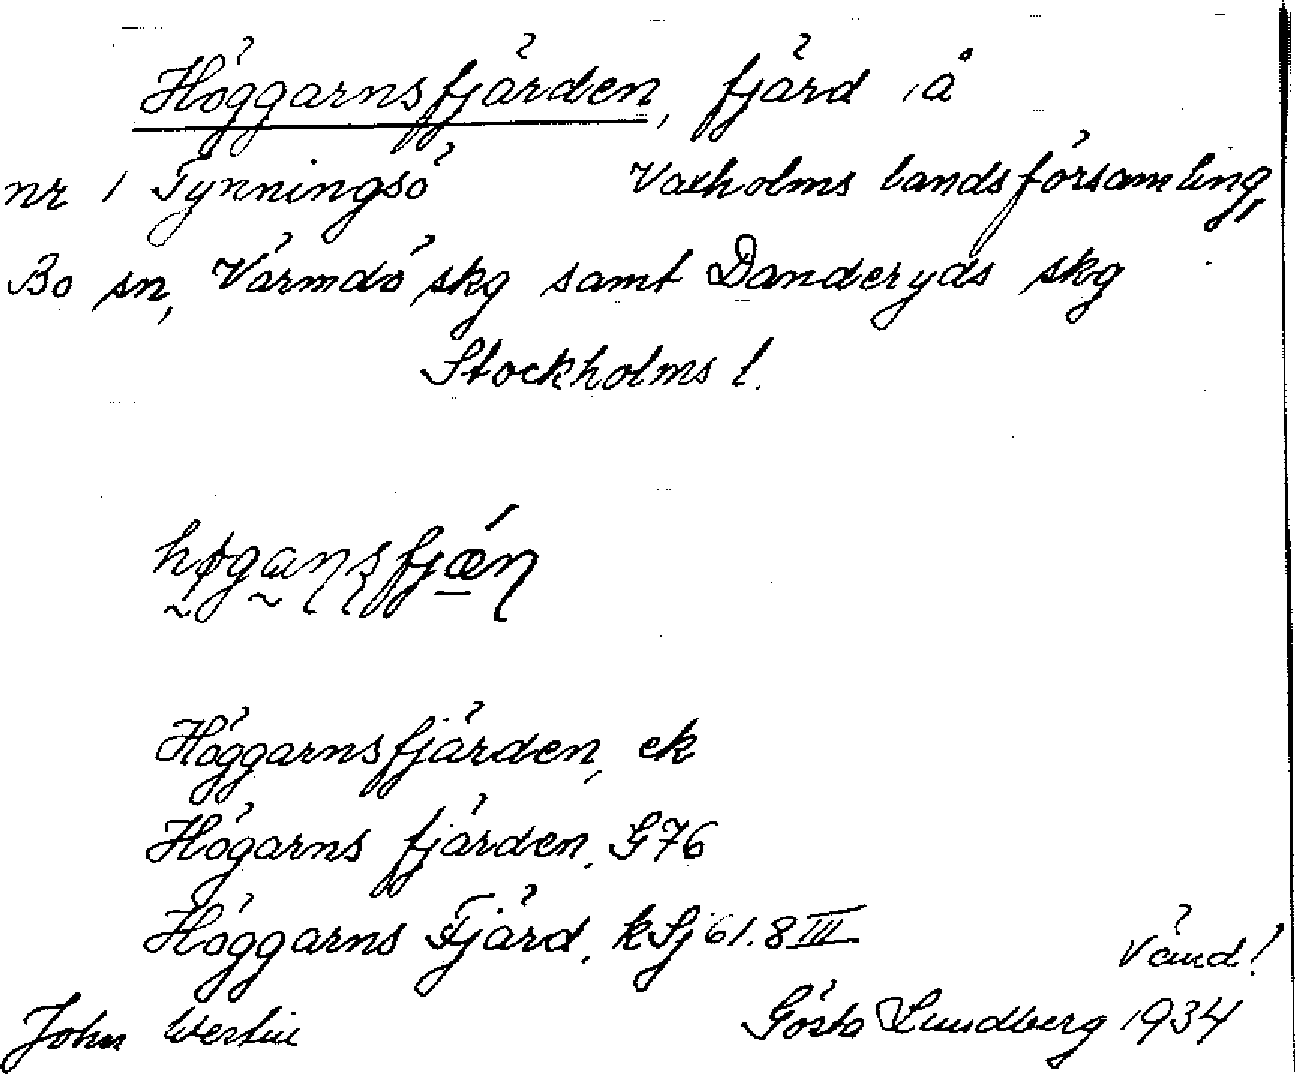 Höggarnsfjärden, fjärd, å
nr 1 Tynningsö Vaxholms landsförsamling,
Bo sn, Värmdö skg samt Danderyds skg
Stockholms l.
høgansfjǽn
Höggarnsfjärden, ek
Högarns fjärden, G76
Höggarns Fjärd, kSj 61.8 III
Vänd!
John Westin Gösta Lundberg 1934